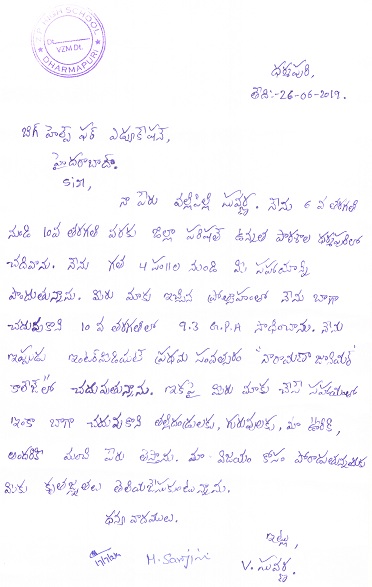 Z.P. HIGH SCHOOL
Dt.
VZM.Dt.
DHARMAPURI
ధర్మపురి,
తేది:-26-06-2019.
బిగ్ హెల్ప్ ఫర్ ఎడ్యుకేషన్,
హైదరాబాద్.
Sir,
నా పేరు వల్లిపిల్లి సువర్ణ. నేను 6 వ తరగతి
నుండి 10వ తరగతి వరకు జిల్లా పరిషత్ ఉన్నత పాఠశాల ధర్మపురిలో
చదివాను. నేను గత 4 సంIIల నుండి మీ సహాయాన్ని
పొందుతున్నాను. మీరు మాకు ఇచ్చిన ప్రోత్సాహంతో నేను బాగా
చదువుకొని 10 వ తరగతిలో 9.3 G.P.A సాధించాను. నేను
ఇప్పుడు ఇంటర్మీడియట్ ప్రథమ సంవత్సరం "నారాయణ జూనియర్
కాలేజ్"లో చదువుతున్నాను. ఇకపై మీరు మాకు చేసే సహాయంతో
ఇంకా బాగా చదువుకొని తల్లిదండ్రులకు, గురువులకు, మా ఊరికి,
అందరికి మంచి పేరు తెస్తాను. మా విజయం కోసం పోరాడుతున్నందుకు
మీకు కృతజ్ఞతలు తెలియజేసుకుంటున్నాను.
ధన్యవాదములు.
ఇట్లు,
M. Sarojini
V. సువర్ణ.